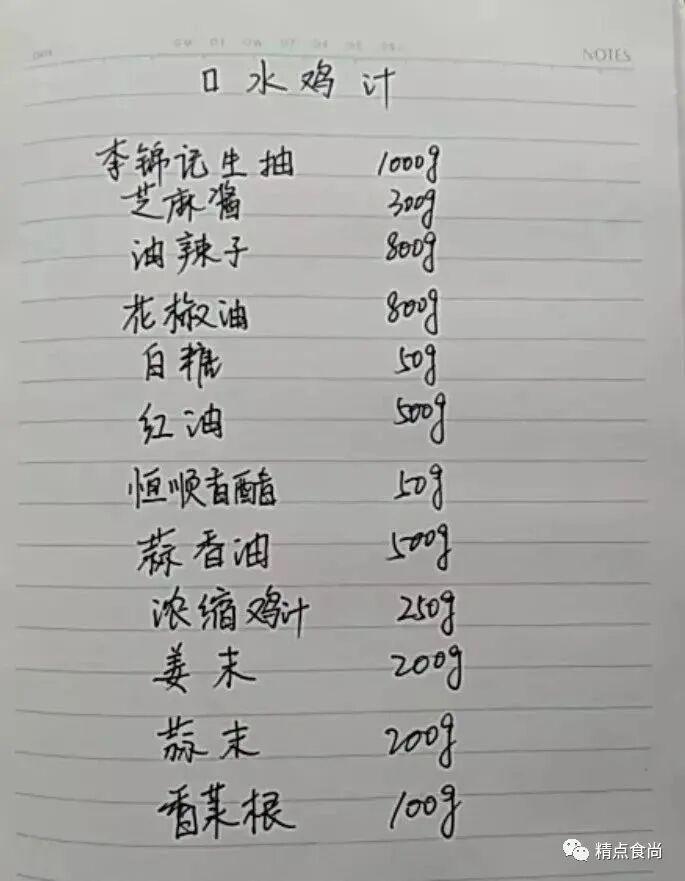 NOTES
口水鸡汁
李锦记生抽 1000g
芝麻酱 300g
油辣子 800g
花椒油 800g
白糖 50g
红油 500g
恒顺香醋 50g
蒜香油 500g
浓缩鸡汁 250g
姜末 200g
蒜末 200g
香菜根 100g
精点食尚